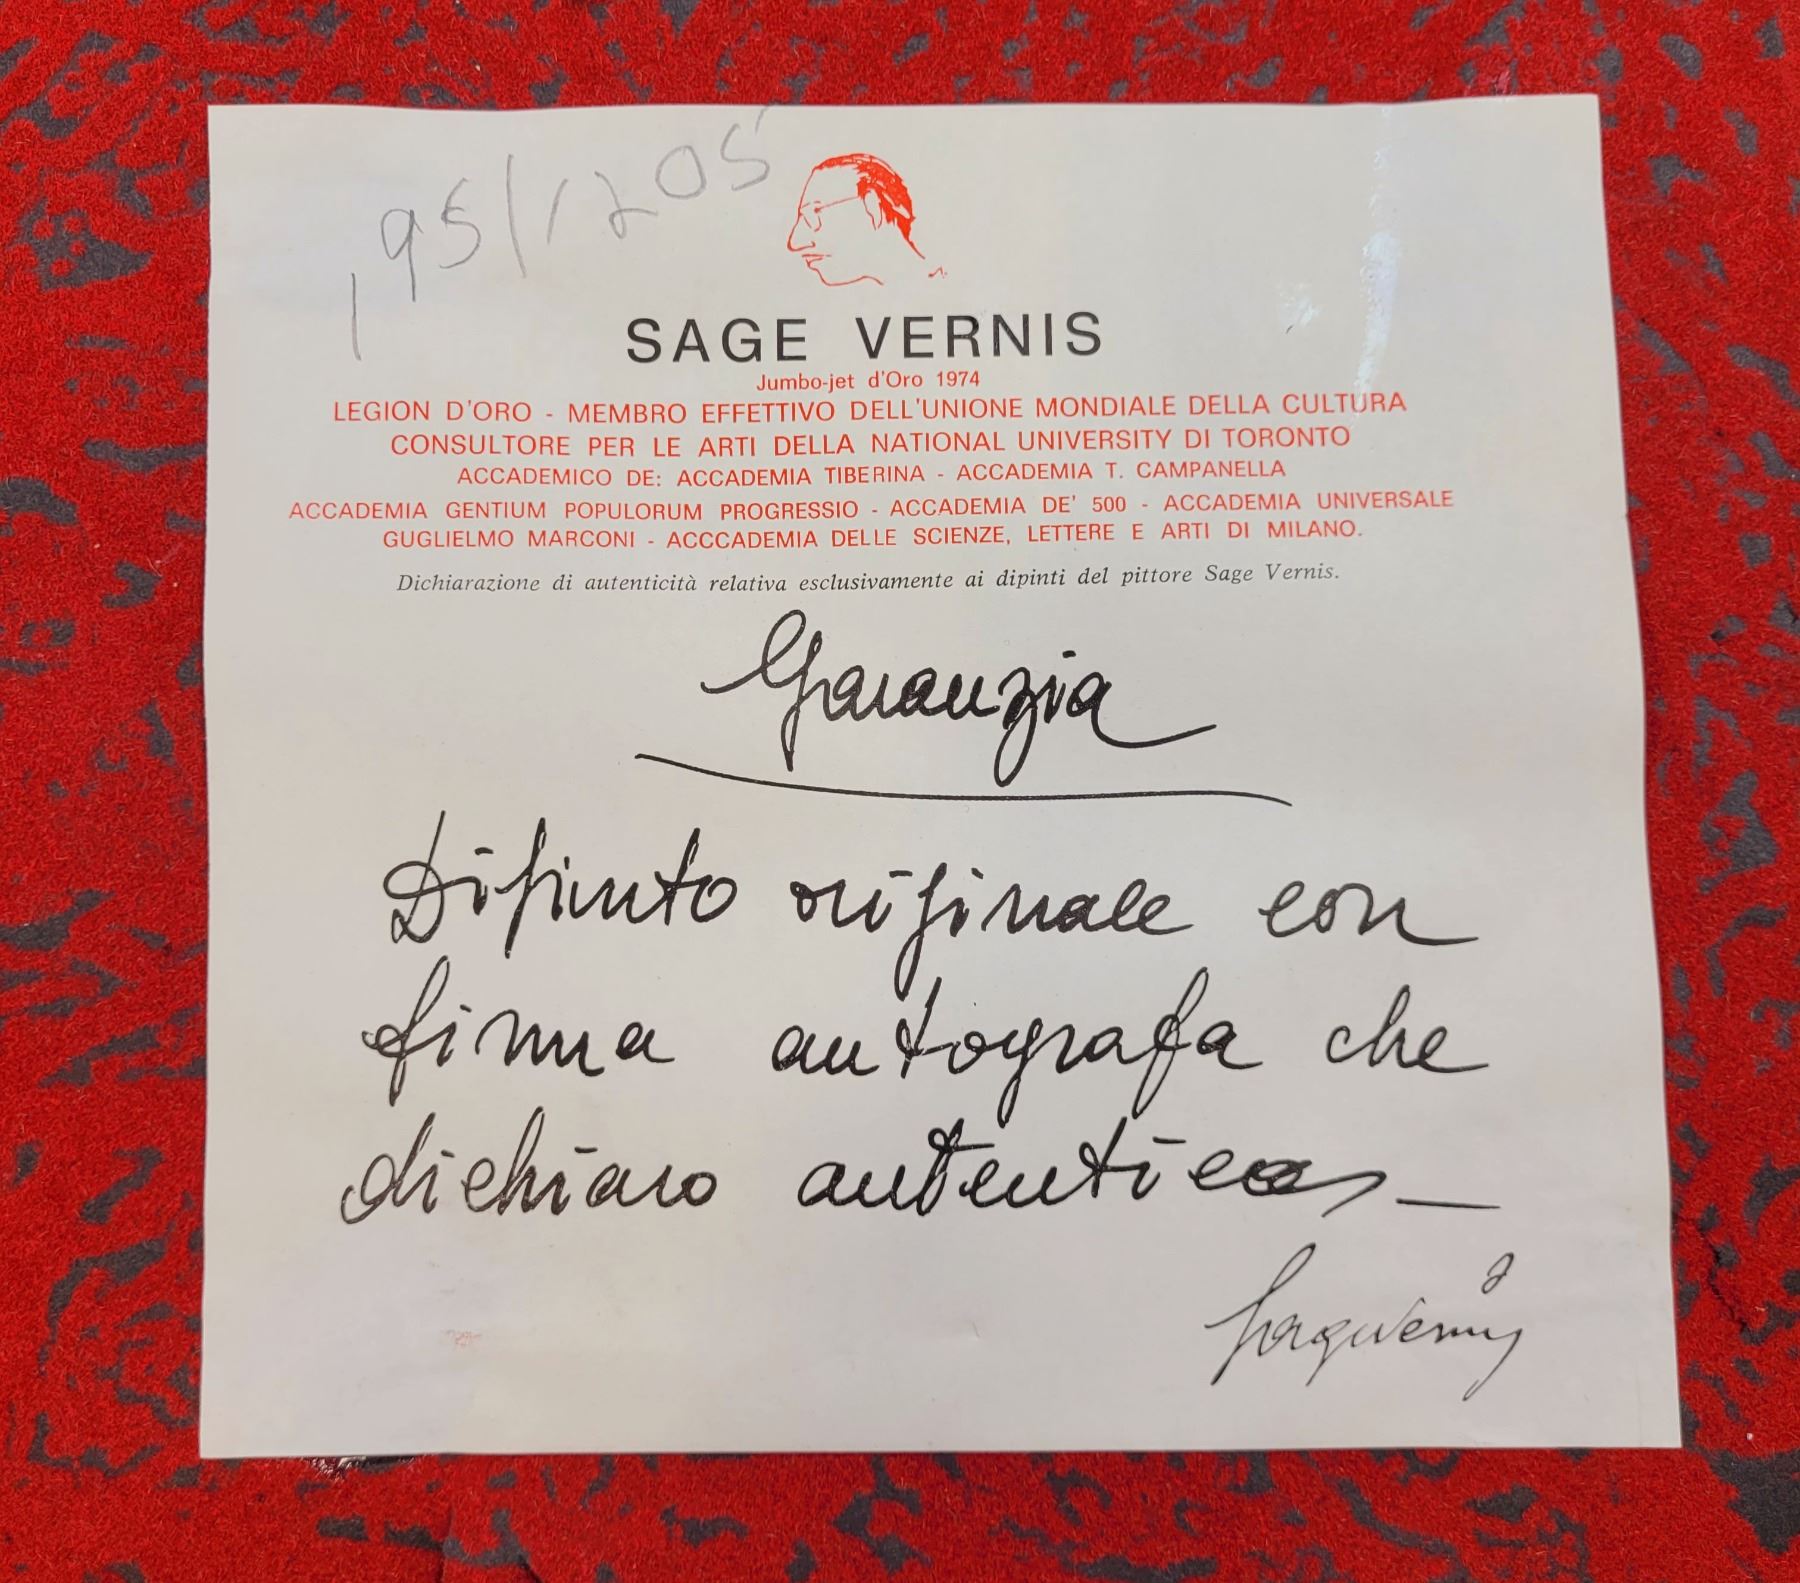 195/1205
SAGE VERNIS
Jumbo-jet d'Oro 1974
LEGION D'ORO - MEMBRO EFFETTIVO DELL'UNIONE MONDIALE DELLA CULTURA
CONSULTORE PER LE ARTI DELLA NATIONAL UNIVERSITY DI TORONTO
ACCADEMICO DE: ACCADEMIA TIBERINA - ACCADEMIA T. CAMPANELLA
ACCADEMIA GENTIUM POPULORUM PROGRESSIO - ACCADEMIA DE' 500 - ACCADEMIA UNIVERSALE
GUGLIELMO MARCONI - ACCCADEMIA DELLE SCIENZE, LETTERE E ARTI DI MILANO.
Dichiarazione di autenticità relativa esclusivamente ai dipinti del pittore Sage Vernis.
Garanzia
Dipinto originale con
firma autografa che
dichiaro
Sagevernis